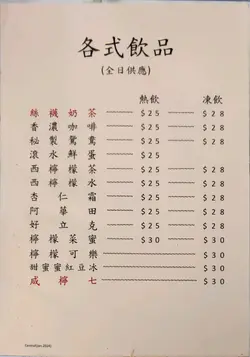 各式飲品
(全日供應)
熱飲 凍飲
絲襪奶茶 $25 $28
香濃咖啡 $25 $28
秘製鴛鴦 $25 $28
滾水鮮蛋 $25
西檸檬茶 $25 $28
西檸檬水 $25 $28
杏仁霜 $25 $28
阿華田 $25 $28
好立克 $25 $28
檸檬菜蜜 $30 $30
檸檬可樂 $30
甜蜜蜜紅豆冰 $30
咸檸七 $30